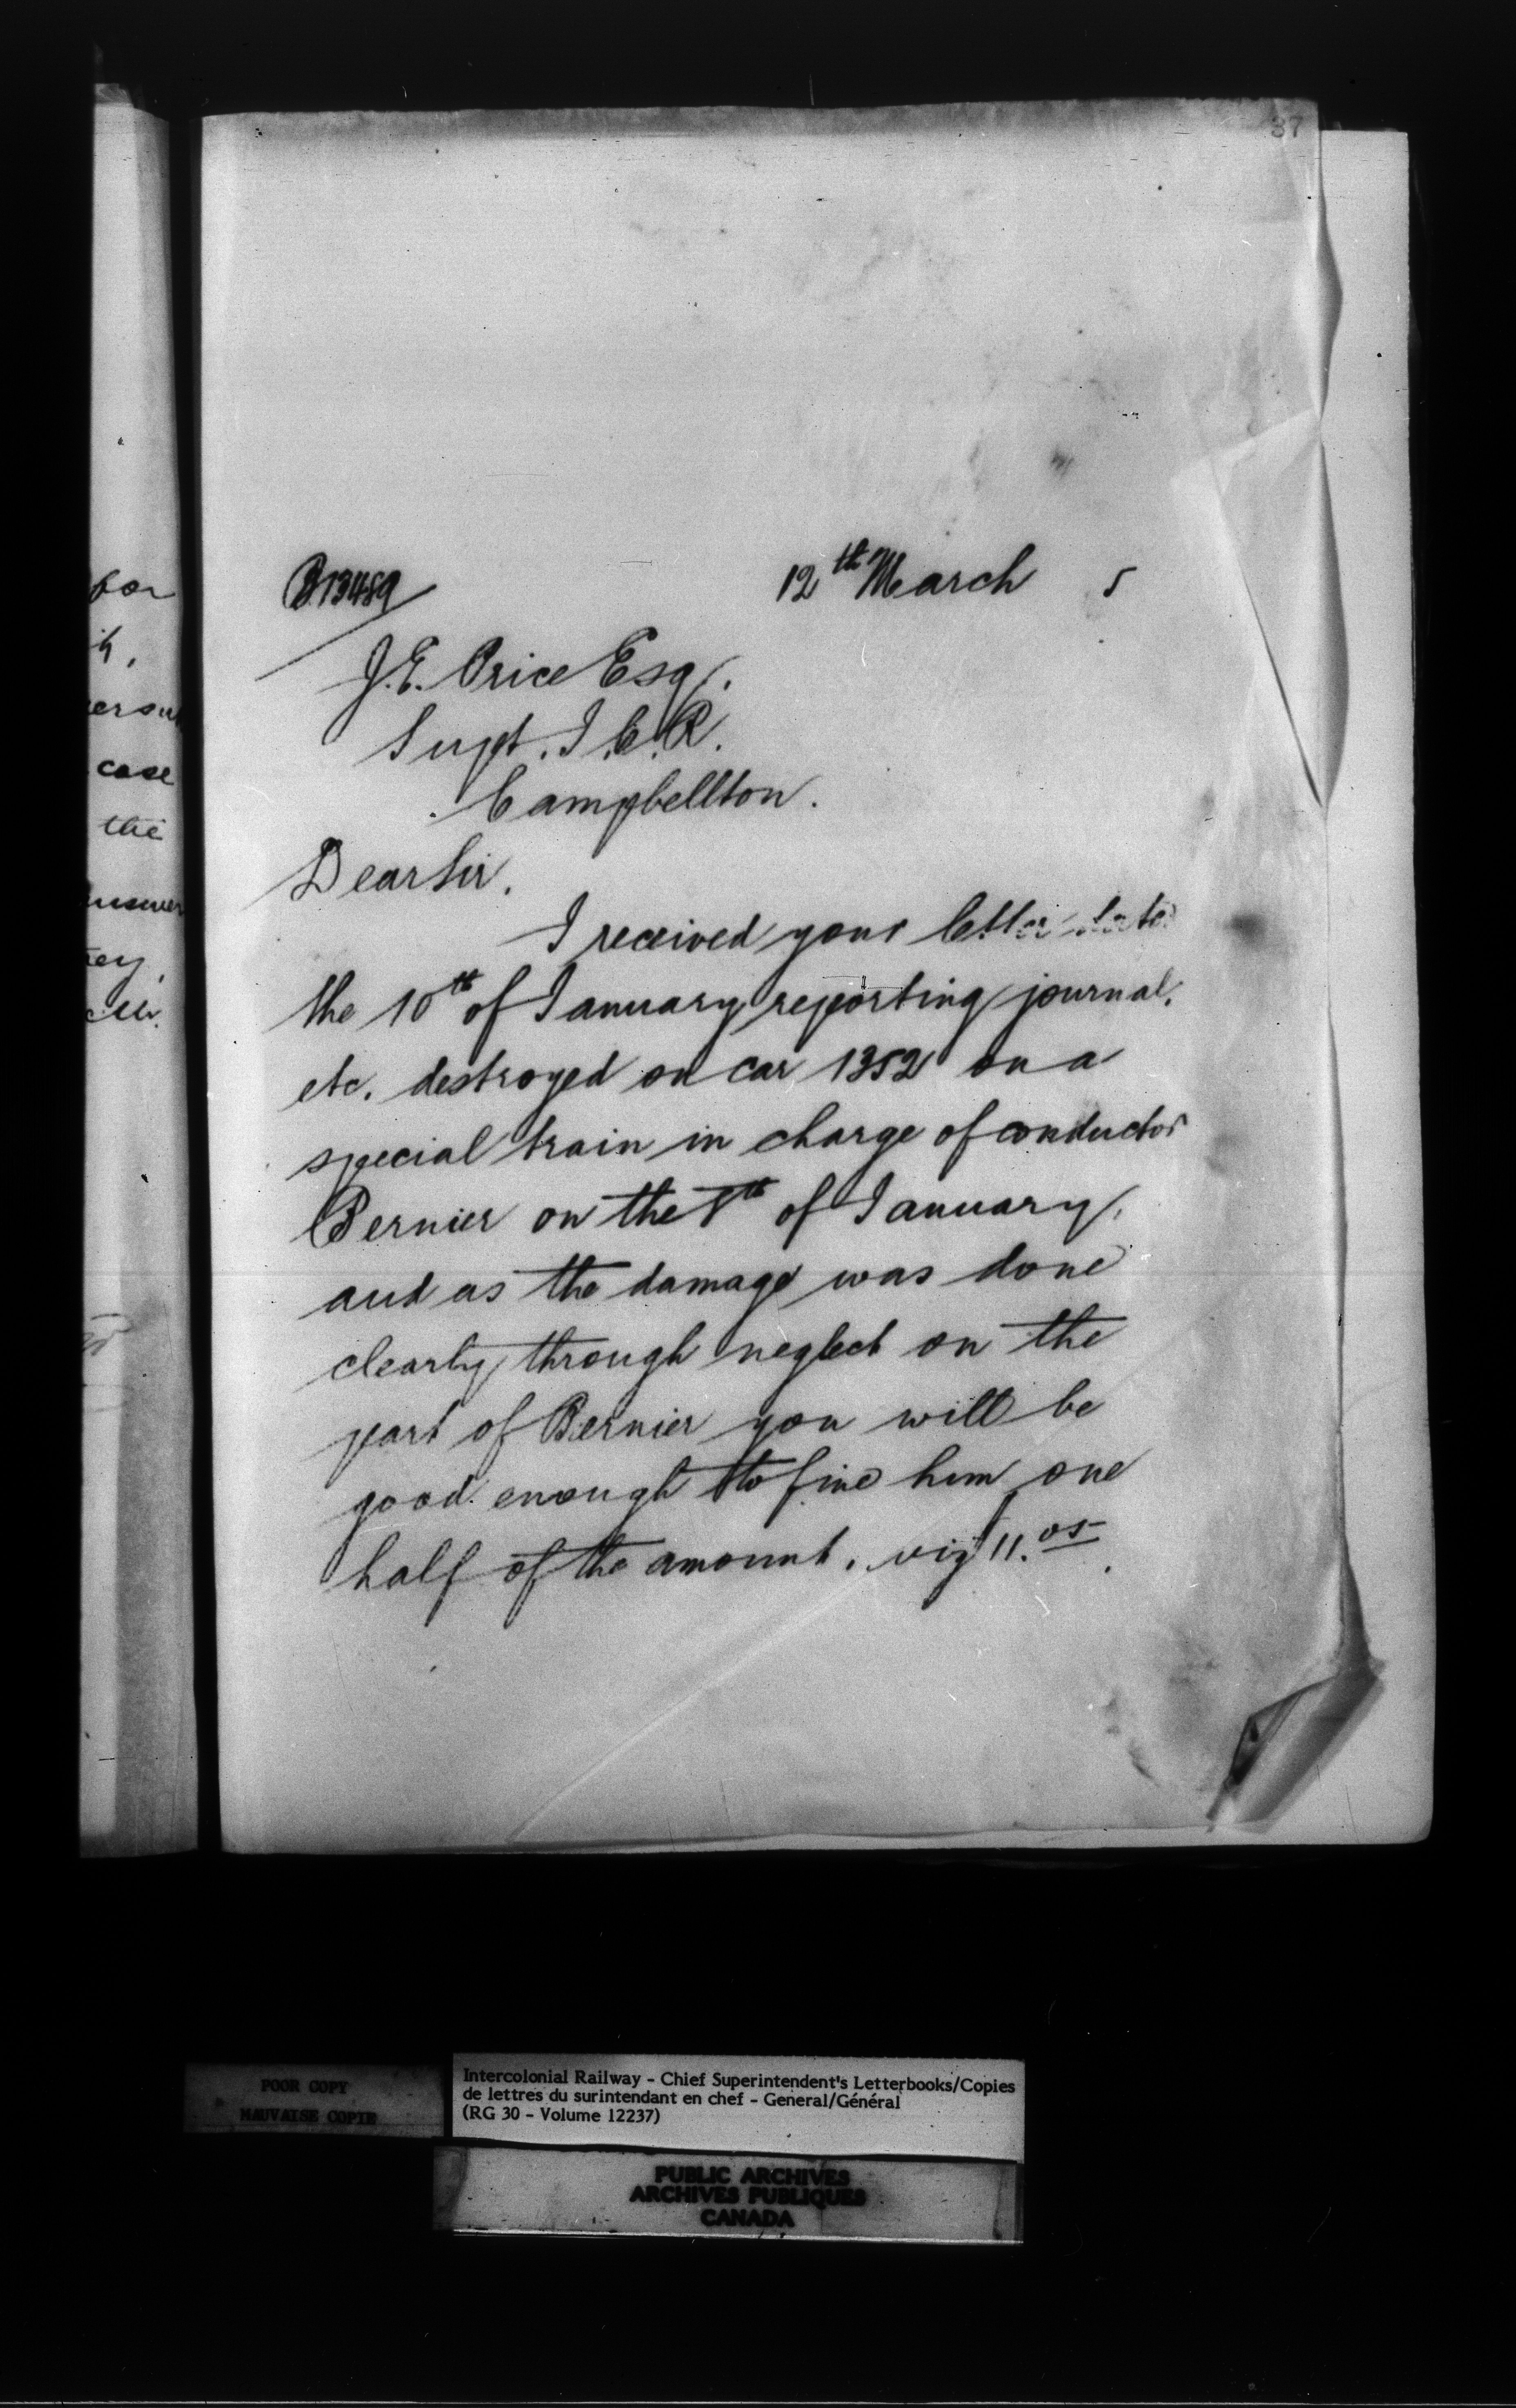 37
B13489
12th March 5
J.E. Price Esq.
Supt. I.C.R.
Campbellton.
Dear Sir.
I received your letter date
the 10th of January reporting journal.
etc. destroyed on car 1352 on a
special train in charge of conductor
Bernier on the 8th of January,
and as the damage was done
clearly through neglect on the
part of Bernier you will be
good enough to fine him one
half of the amount. viz 11.05
for
case
the
answer
POOR COPY
MAUVAISE COPIE
Intercolonial Railway - Chief Superintendent's Letterbooks/Copies
de lettres du surintendant en chef - General/Général
(RG 30 - Volume 12237)
PUBLIC ARCHIVES
ARCHIVES PUBLIQUES
CANADA